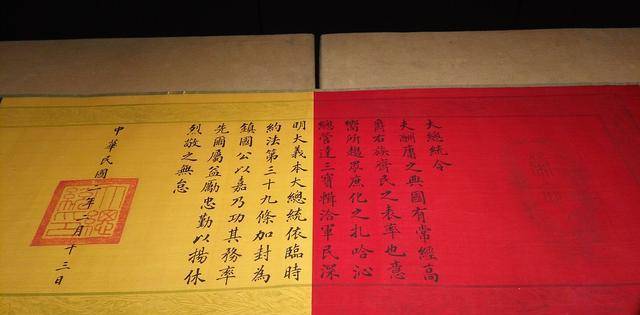 大總統令
夫酬庸之典國有常經高
爵右族齊民之表率也意
嚮所趨眾庶化之扎哈沁
總管達三寶輯洽軍民深
明大義本大總統依臨時
約法第三十九條加封為
鎮國公以嘉乃功其務率
先爾屬益勵忠勤以揚休
烈敬之無怠
中華民國二年二月十三日